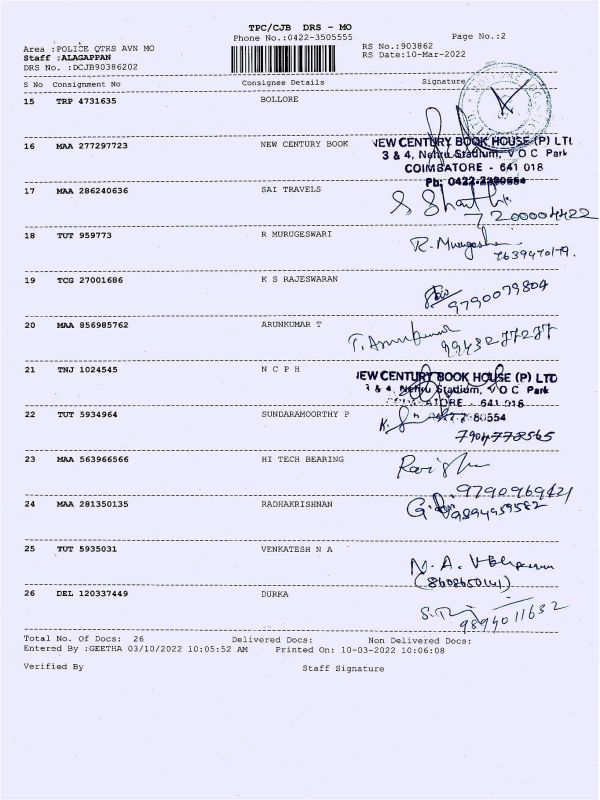 TPC/CJB DRS - MO
Phone No.:0422-3505555
Page No.:2
Area :POLICE QTRS AVN MO
RS No.:903862
Staff :ALAGAPPAN
RS Date:10-Mar-2022
DRS No. :DCJB90386202
S No Consignment No Consignee Details Signature
15 TRP 4731635 BOLLORE
16 MAA 277297723 NEW CENTURY BOOK
NEW CENTURY BOOK HOUSE (P) LTD
3 & 4, Nehru Stadium, V O C Park
COIMBATORE - 641 018
Ph: 0422-2380554
17 MAA 286240636 SAI TRAVELS
S Shanthi
7200004422
18 TUT 959773 R MURUGESWARI
R. Murugeshwari
7639470179.
19 TCG 27001686 K S RAJESWARAN
9790079804
20 MAA 856985762 ARUNKUMAR T
T. Arunkumar
9943277277
21 TNJ 1024545 N C P H
NEW CENTURY BOOK HOUSE (P) LTD
3 & 4, Nehru Stadium, V O C Park
COIMBATORE - 641 018
22 TUT 5934964 SUNDARAMOORTHY P
80554
7904778565
23 MAA 563966566 HI TECH BEARING
9790969421
24 MAA 281350135 RADHAKRISHNAN
9894959582
25 TUT 5935031 VENKATESH N A
N. A. V
(8608650141)
26 DEL 120337449 DURKA
9894011632
Total No. Of Docs: 26 Delivered Docs: Non Delivered Docs:
Entered By :GEETHA 03/10/2022 10:05:52 AM Printed On: 10-03-2022 10:06:08
Verified By Staff Signature